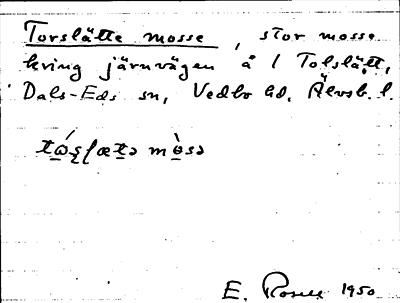 Torslätte mosse, stor mosse
kring järnvägen å 1 Tolslätt,
Dals-Eds sn, Vedbo hd, Älvsb. l.
E. Rosell 1950